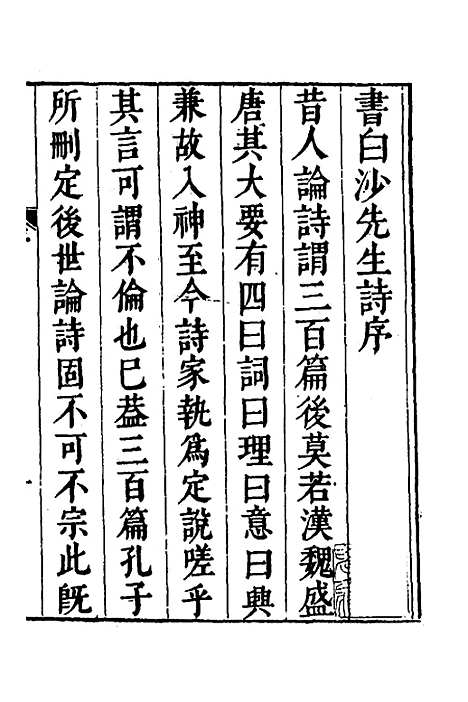 書白沙先生詩序
昔人論詩謂三百篇後莫若漢魏盛
唐其大要有四曰詞曰理曰意曰興
兼故入神至今詩家執爲定說嗟乎
其言可謂不倫也已葢三百篇孔子
所刪定後世論詩固不可不宗此旣